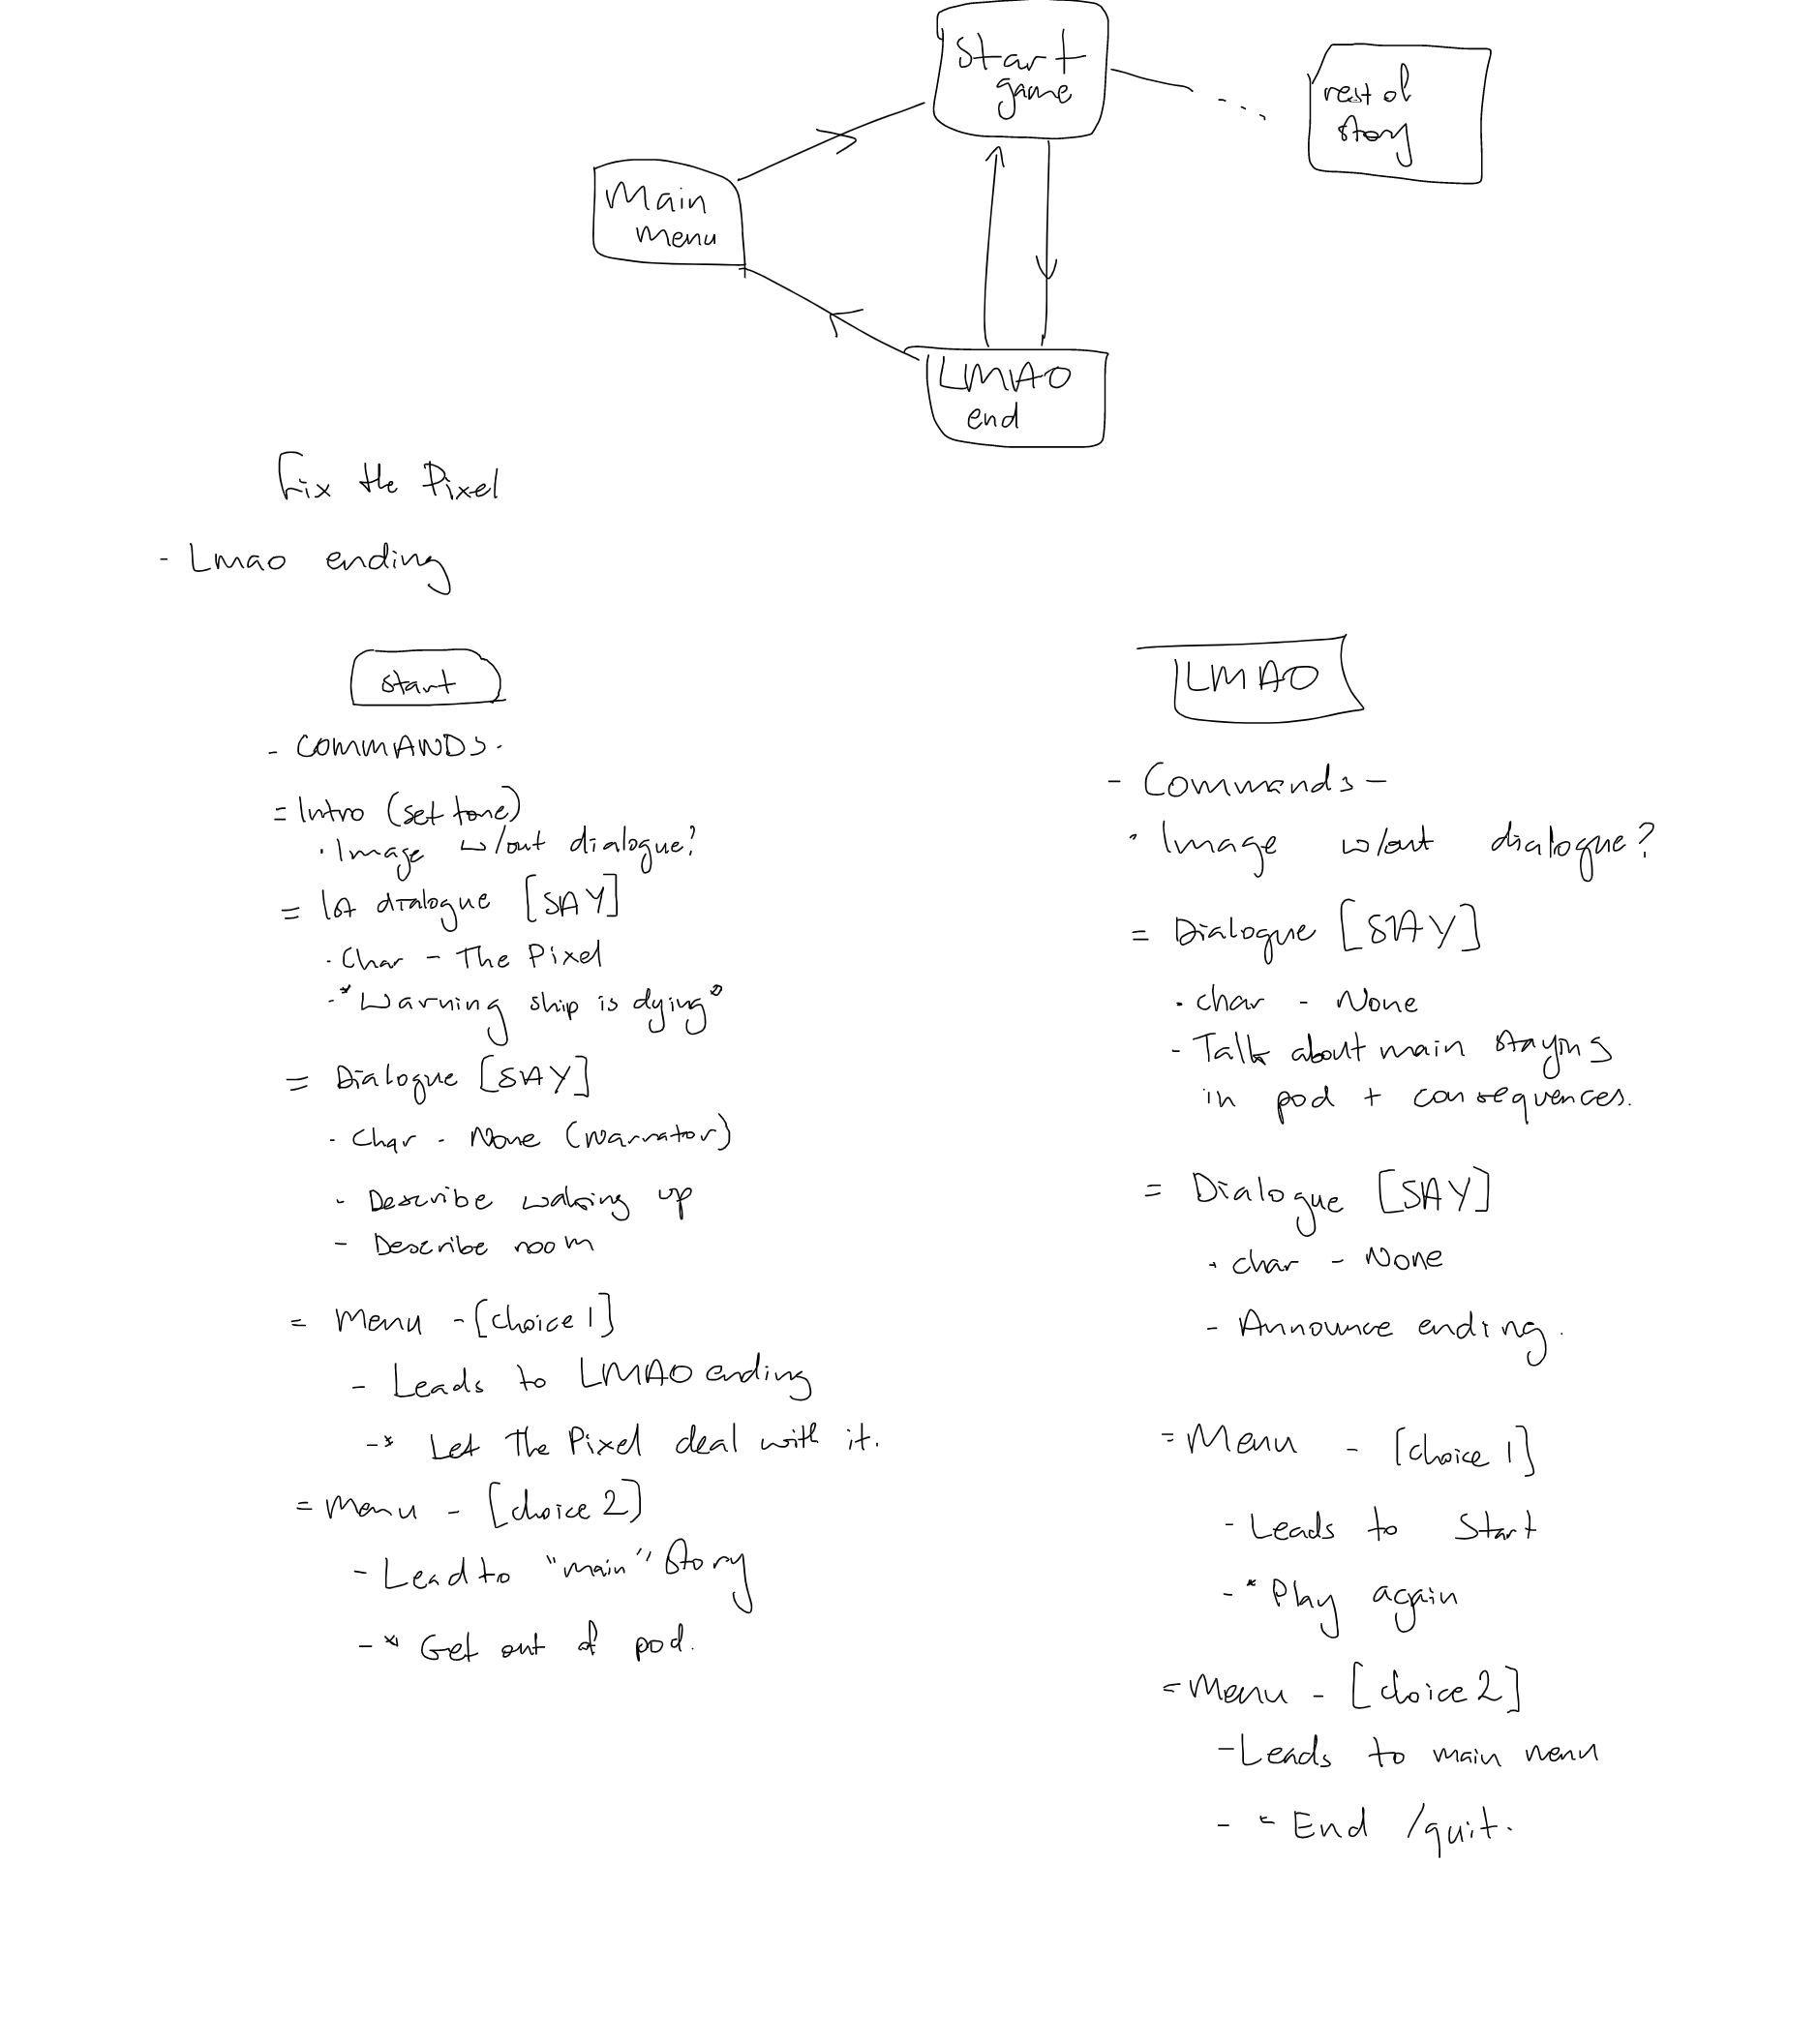 Start
game
rest of
story
Main
menu
LMAO
end
Fix the Pixel
- Lmao ending
Start
- COMMANDS -
= Intro (set tone)
· Image w/out dialogue?
= 1st dialogue [SAY]
· Char - The Pixel
- * Warning ship is dying *
= Dialogue [SAY]
- Char - None (Narrator)
- Describe waking up
- Describe room
= Menu - [choice 1]
- Leads to LMAO ending
- * Let The Pixel deal with it.
= Menu - [choice 2]
- Lead to "main" Story
- * Get out of pod.
LMAO
- Commands -
· Image w/out dialogue?
= Dialogue [SAY]
· char - None
- Talk about main staying
in pod + consequences.
= Dialogue [SAY]
· char - None
- Announce ending.
= Menu - [choice 1]
- Leads to Start
- * Play again
= Menu - [choice 2]
- Leads to main menu
- * End / quit.